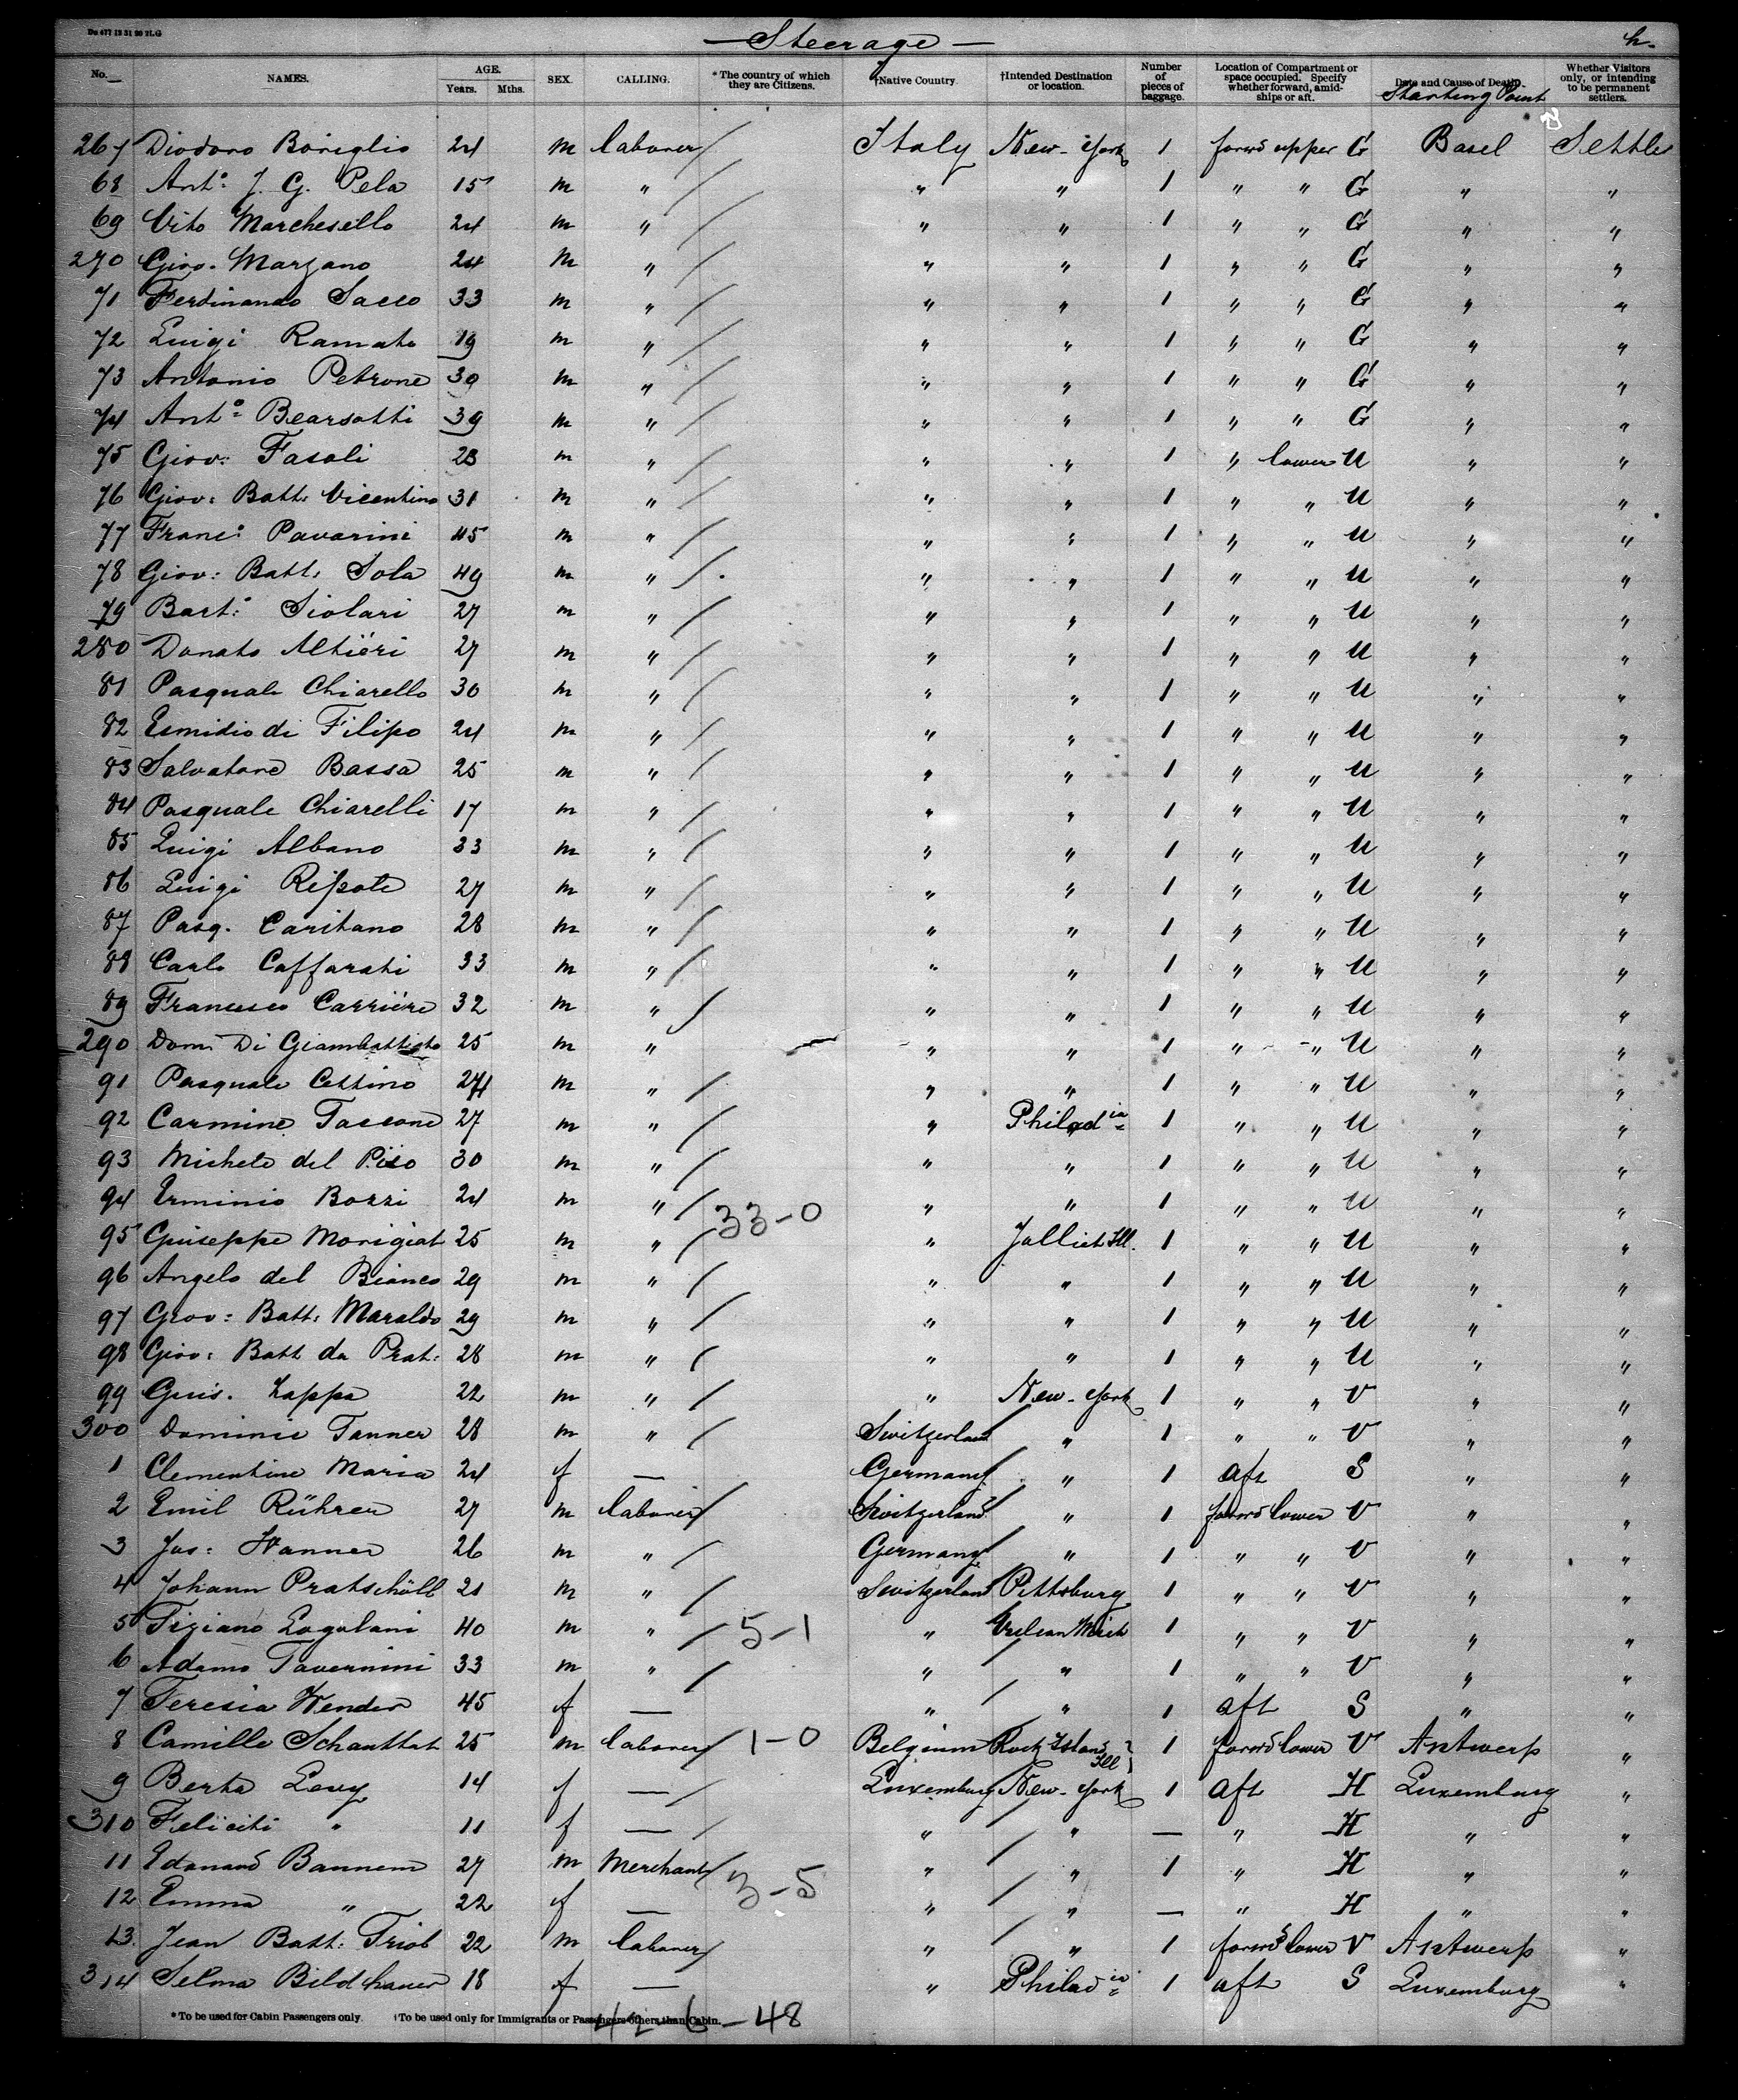 Do 477 12 31 90 2LG
Steerage
h.
No. NAMES. AGE. Years. Mths. SEX. CALLING. *The country of which they are Citizens. †Native Country. †Intended Destination or location. Number of pieces of baggage. Location of Compartment or space occupied. Specify whether forward, amidships or aft. Date and Cause of Death. Starting Point Whether Visitors only, or intending to be permanent settlers.
267 Diodoro Boniglio 24 m laborer / Italy New-York 1 forwd upper G Basel Settler
68 Anto: J. G. Pela 15 m " / " " 1 " " G " "
69 Vito Marchesello 24 m " / " " 1 " " G " "
270 Giov. Marzano 24 m " / " " 1 " " G " "
71 Ferdinando Sacco 33 m " / " " 1 " " G " "
72 Luigi Ramato 19 m " / " " 1 " " G " "
73 Antonio Petrone 39 m " / " " 1 " " G " "
74 Anto Bearsotti 39 m " / " " 1 " " G " "
75 Giov: Fasoli 23 m " / " " 1 " lower U " "
76 Giov: Batt: Vicentino 31 m " / " " 1 " " U " "
77 Franc: Pavarini 45 m " / " " 1 " " U " "
78 Giov: Batt: Sola 49 m " / " " 1 " " U " "
79 Bart: Siolari 27 m " / " " 1 " " U " "
280 Donato Altiéri 27 m " / " " 1 " " U " "
81 Pasquale Chiarello 30 m " / " " 1 " " U " "
82 Esmidio di Filipo 24 m " / " " 1 " " U " "
83 Salvatore Bassa 25 m " / " " 1 " " U " "
84 Pasquale Chiarelli 17 m " / " " 1 " " U " "
85 Luigi Albano 33 m " / " " 1 " " U " "
86 Luigi Ripole 27 m " / " " 1 " " U " "
87 Pasq. Caritano 28 m " / " " 1 " " U " "
88 Carlo Caffarati 33 m " / " " 1 " " U " "
89 Francesco Carriére 32 m " / " " 1 " " U " "
290 Dom. Di Giambattista 25 m " " " 1 " " U " "
91 Pasquale Cettino 24 m " / " " 1 " " U " "
92 Carmine Tascone 27 m " / " Philadia 1 " " U " "
93 Michele del Piso 30 m " / " " 1 " " U " "
94 Erminio Bozzi 24 m " / 33-0 " " 1 " " U " "
95 Guiseppe Morigiat 25 m " / " Jolliet Ill. 1 " " U " "
96 Angelo del Bianco 29 m " / " " 1 " " U " "
97 Giov: Batt: Maraldo 29 m " / " " 1 " " U " "
98 Giov: Batt da Prat: 28 m " / " " 1 " " U " "
99 Guis. Zappa 22 m " / " New-York 1 " " V " "
300 Dominic Tanner 28 m " / Switzerland " 1 " " V " "
1 Clementine Maria 24 f — Germany " 1 aft S " "
2 Emil Rührer 27 m laborer / Switzerland " 1 forwd lower V " "
3 Jos: Wanner 26 m " / Germany " 1 " " V " "
4 Johann Pratschöll 21 m " / Switzerland Pittsburg 1 " " V " "
5 Tiziano Logolani 40 m " / 5-1 " Mich 1 " " V " "
6 Adamo Tavernini 33 m " / " " 1 " " V " "
7 Teresia Wender 45 f — " " 1 aft S " "
8 Camille Schauttat 25 m laborer / 1-0 Belgium Rock Island Ill 1 forwd lower V Antwerp "
9 Berta Levy 14 f — / Luxemburg New-York 1 aft H Luxemburg "
310 Feliciti " 11 f — / " " — " H " "
11 Edmand Bannem 27 m Merchant / 3-5 " " 1 " H " "
12 Emma " 22 f — " " — " H " "
13. Jean Batt: Triob 22 m laborer / " " 1 forwd lower V Antwerp "
314 Selma Bildhauer 18 f — " Philadia 1 aft S Luxemburg "
*To be used for Cabin Passengers only. †To be used only for Immigrants or Passengers others than Cabin.
42-6-48